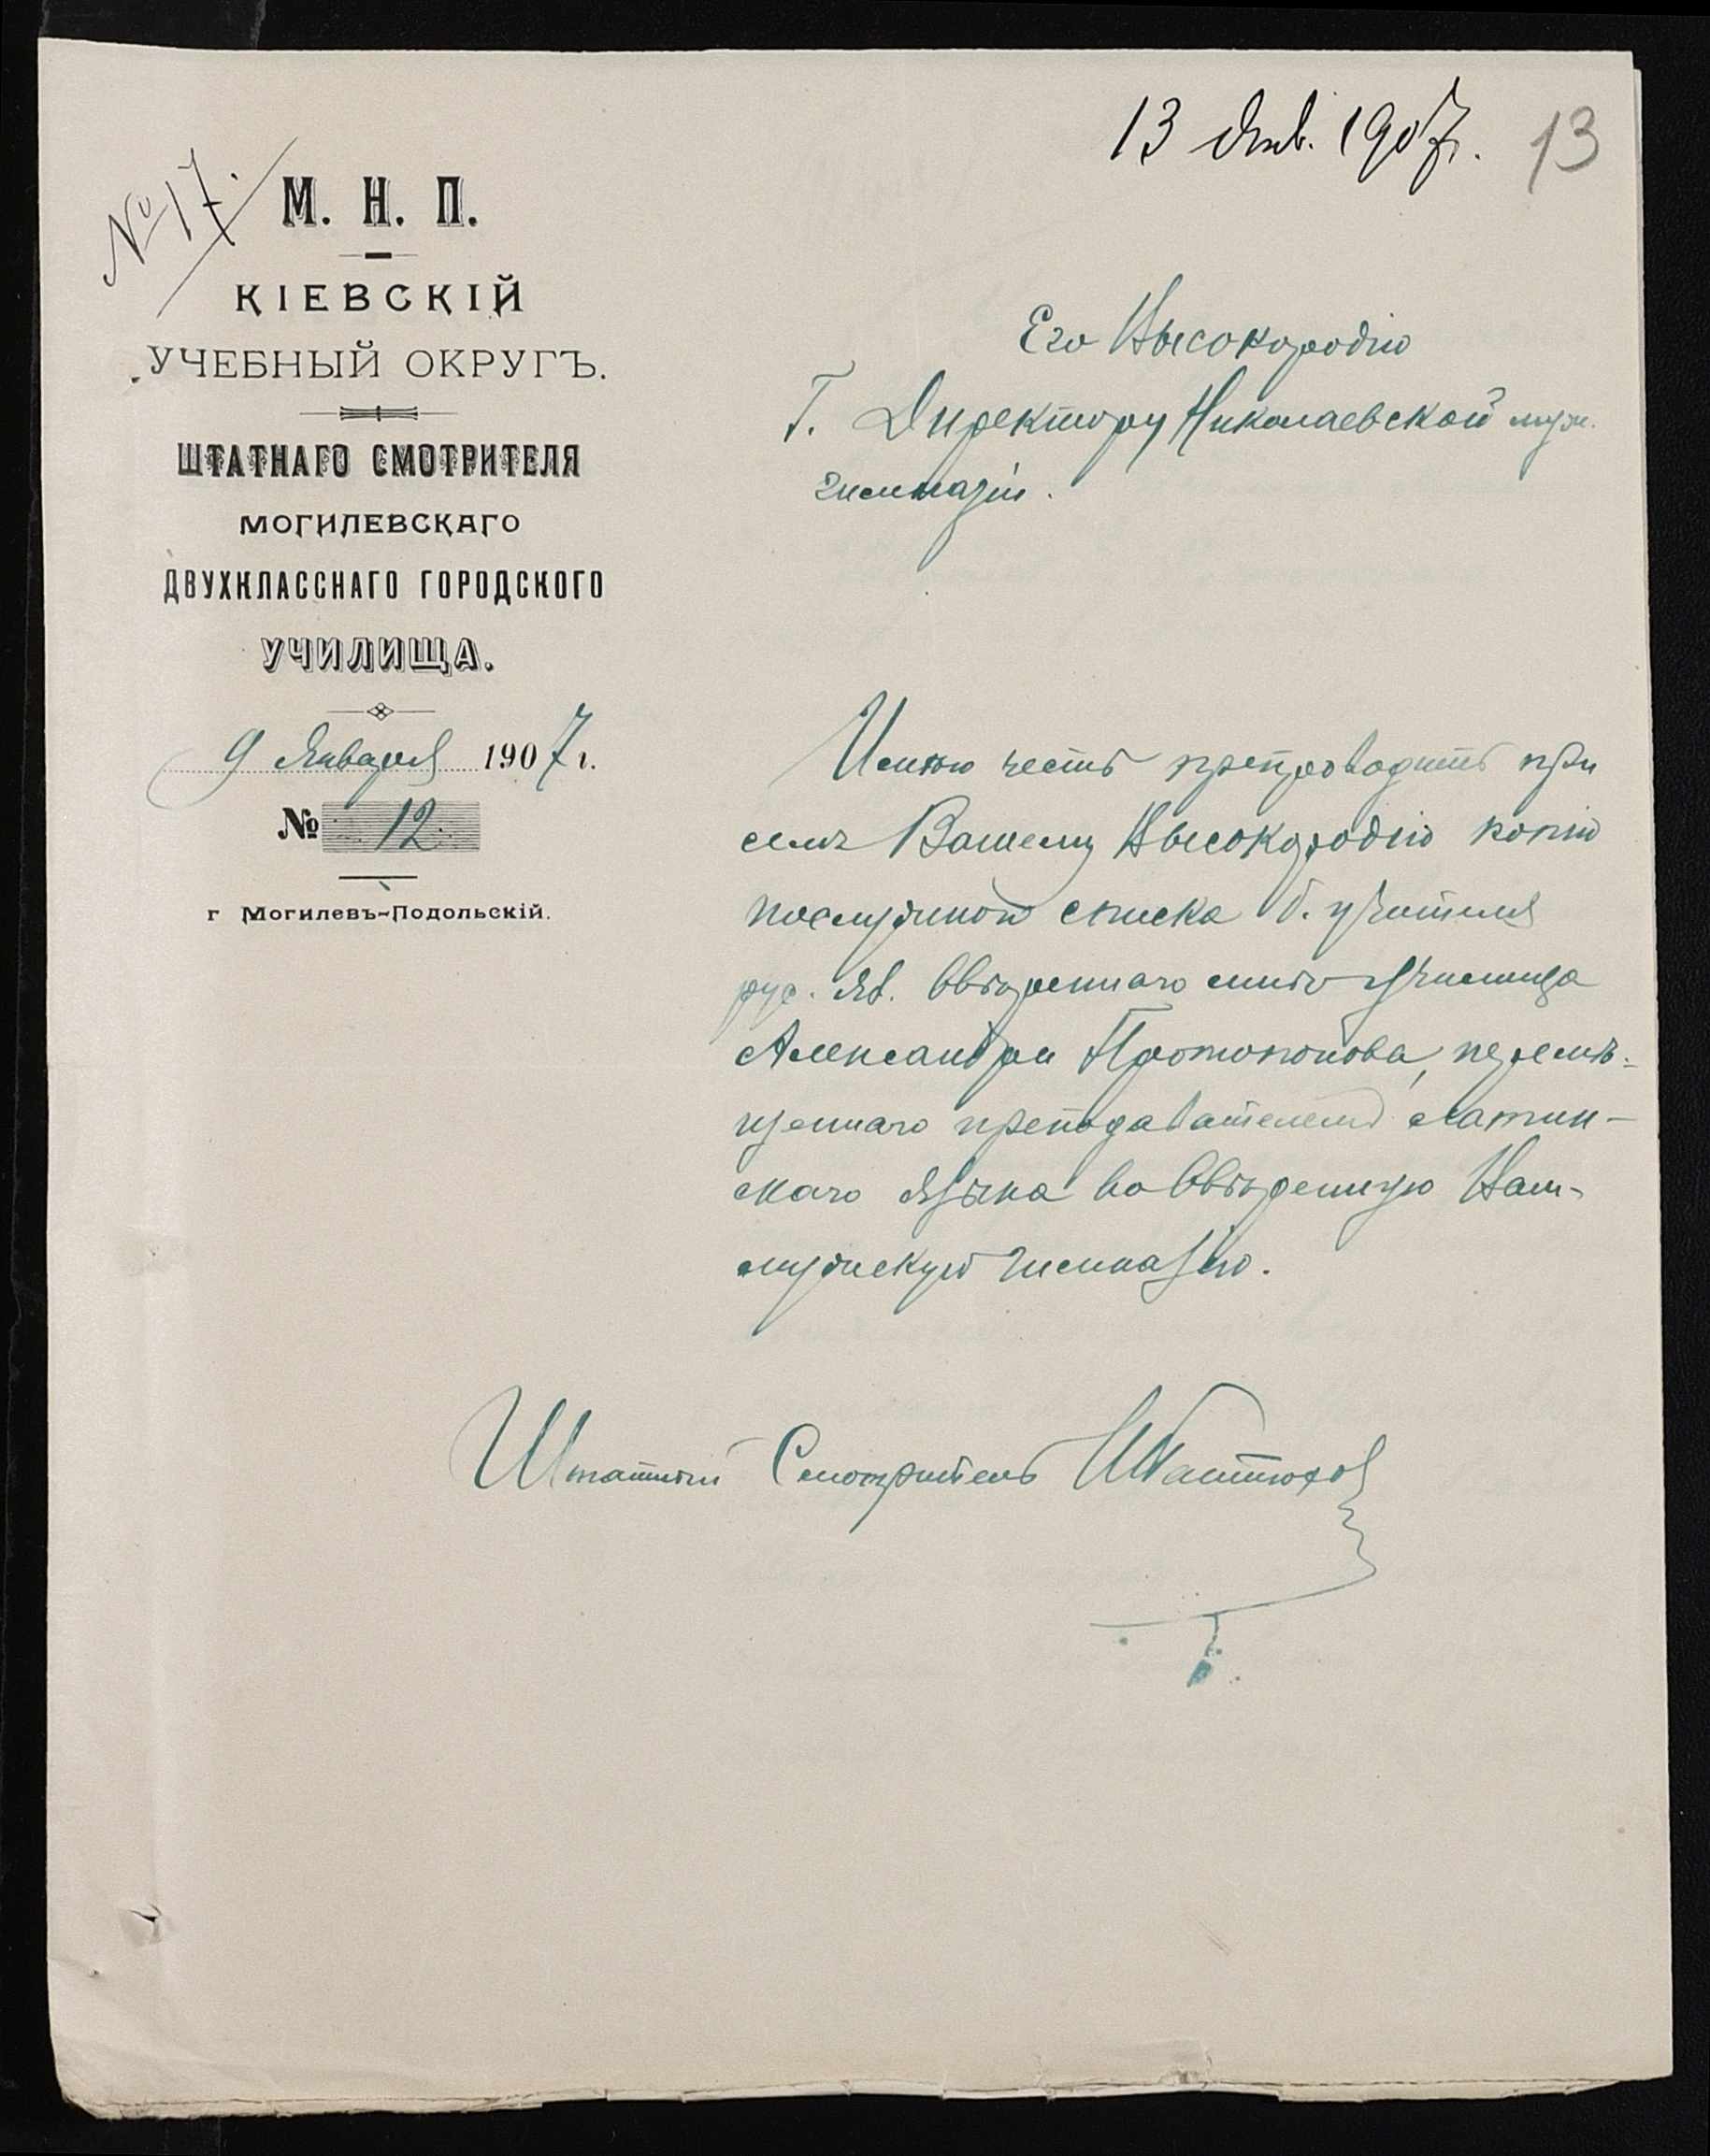 13 Янв. 1907 г. 13
№ 17.
М. Н. П.
КІЕВСКІЙ
УЧЕБНЫЙ ОКРУГЪ.
ШТАТНАГО СМОТРИТЕЛЯ
МОГИЛЕВСКАГО
ДВУХКЛАССНАГО ГОРОДСКОГО
УЧИЛИЩА.
9 Января 1907 г.
№ 12.
г Могилевъ-Подольскій.
Его Высокородію
Г. Директору Николаевской муж.
гимназіи.
Имѣю честь препроводить при
семъ Вашему Высокородію копію
послужного списка б. учителя
рус. яз. ввѣреннаго мнѣ училища
Александра Протопопова, перемѣ-
щеннаго преподавателемъ латин-
скаго языка во ввѣренную Вам-
мужскую гимназію.
Штатный Смотритель